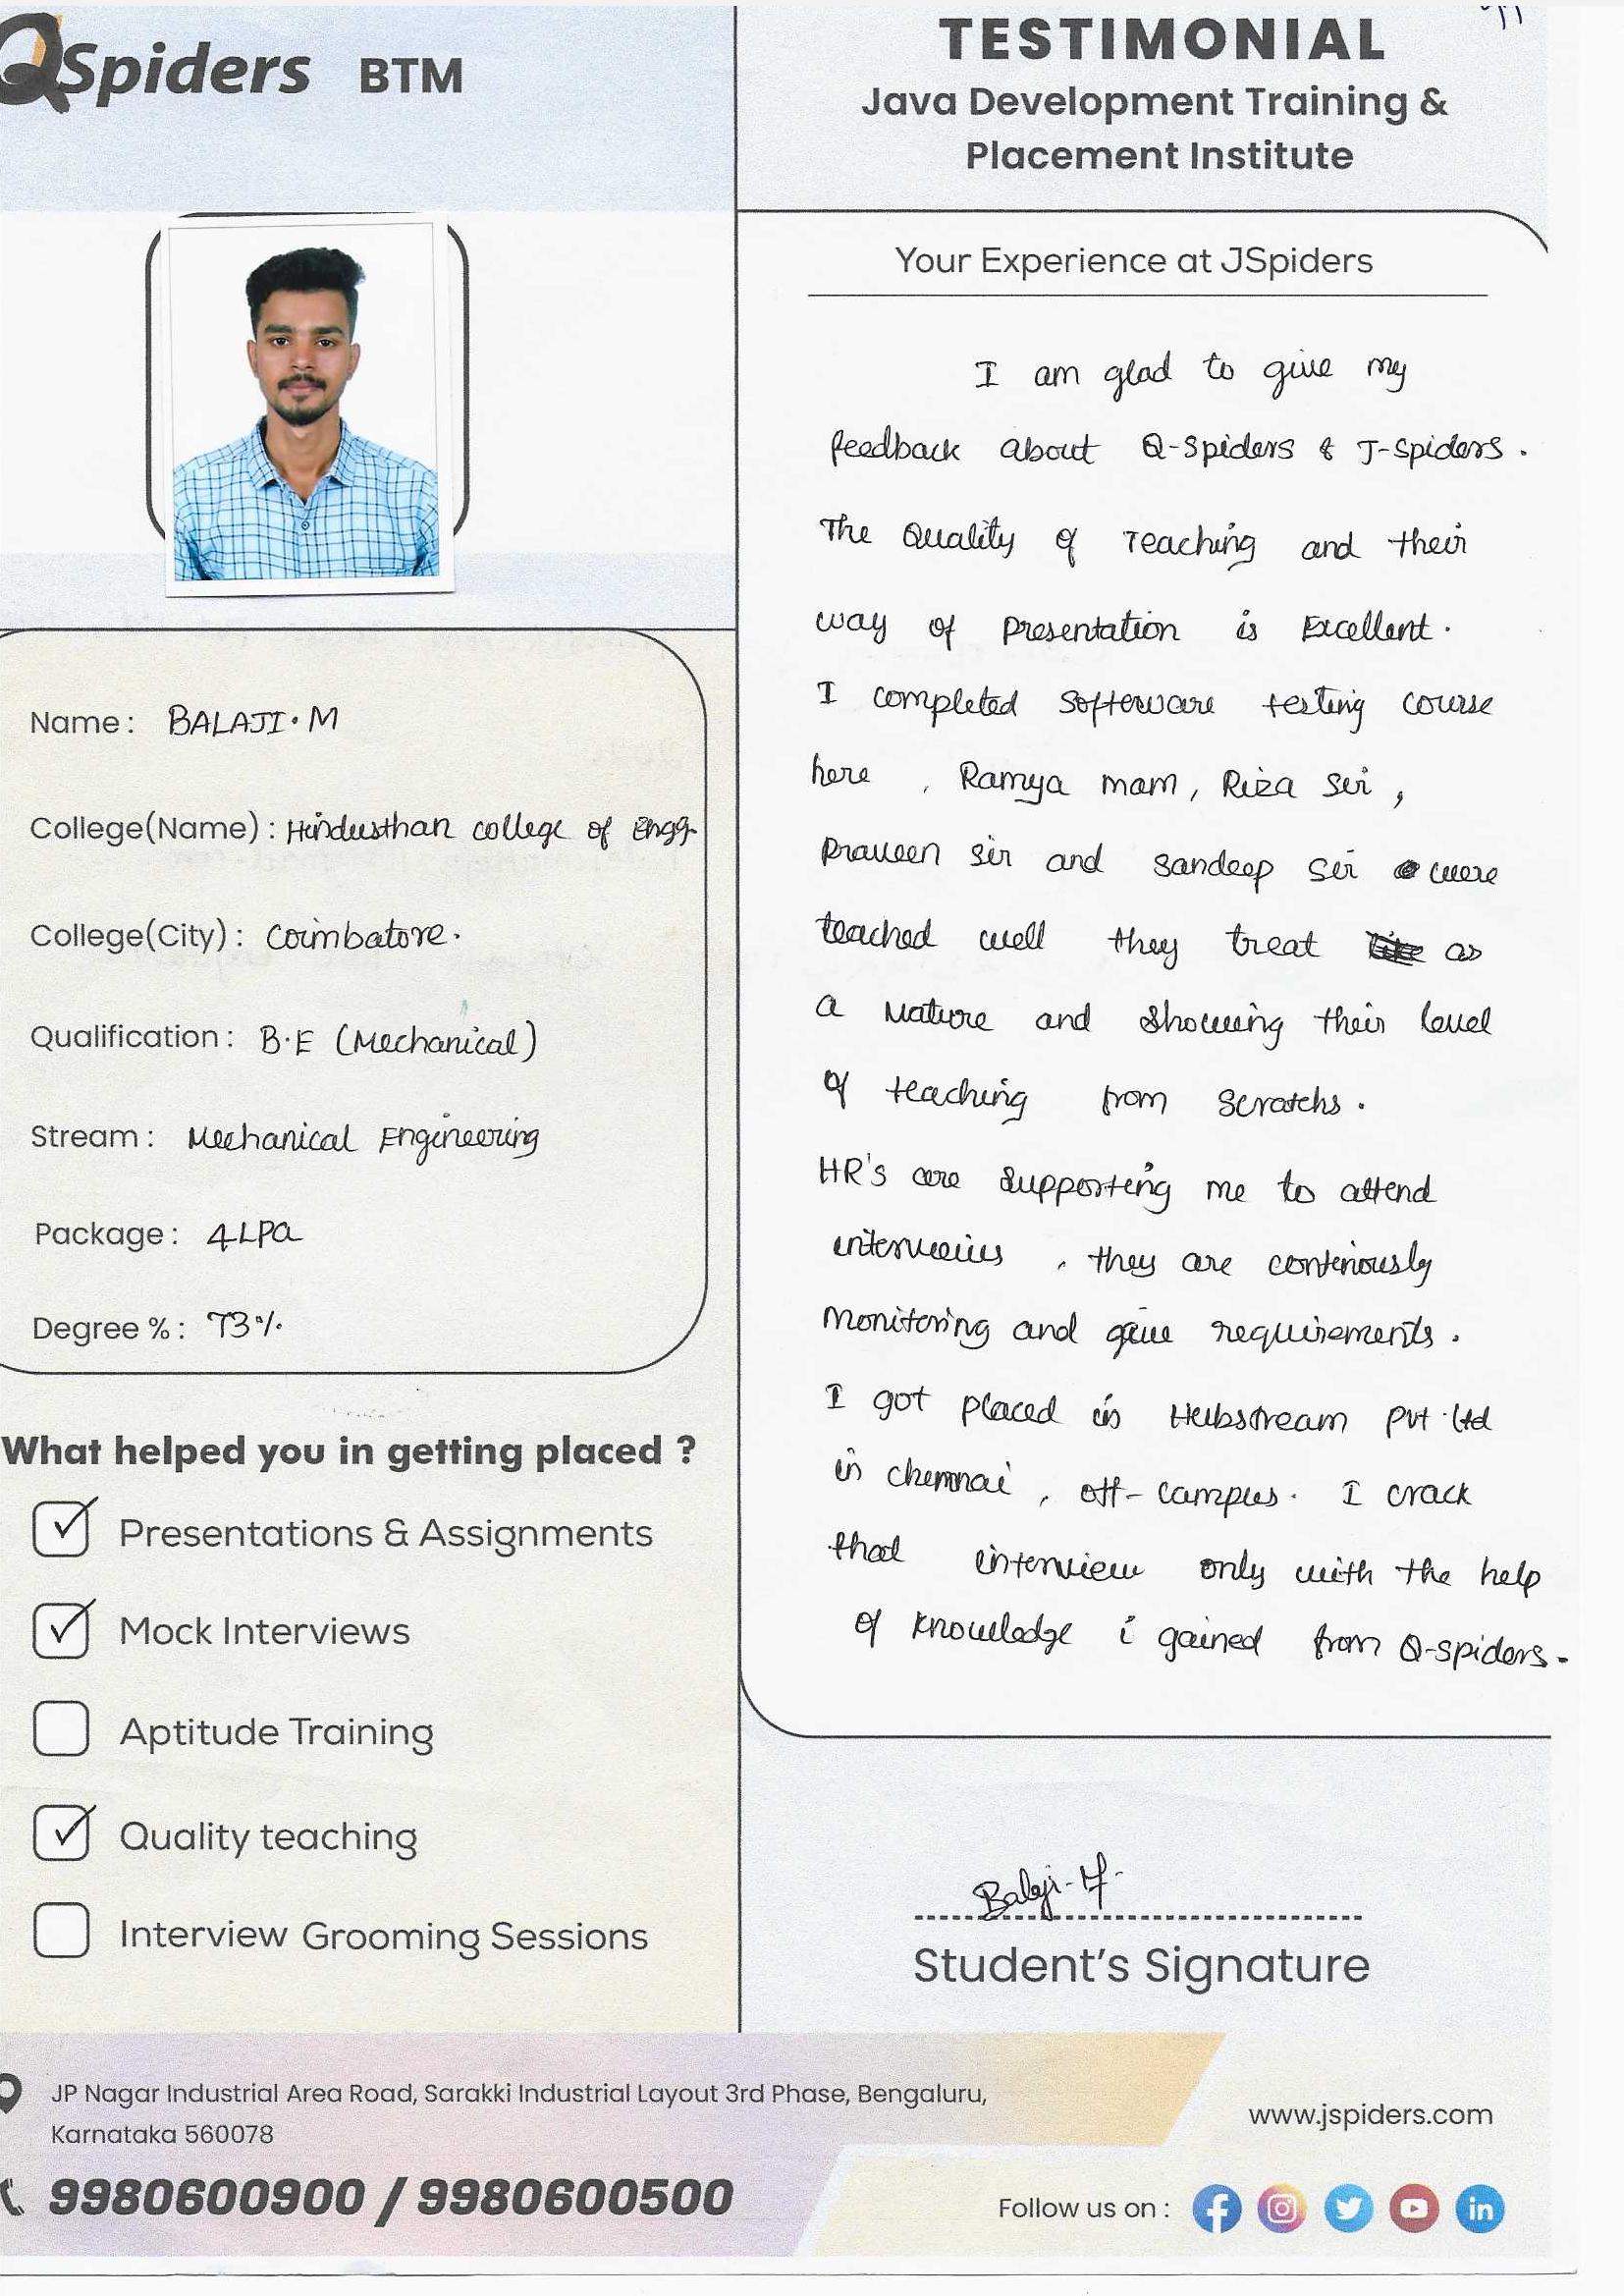 QSpiders BTM
TESTIMONIAL
Java Development Training &
Placement Institute
Your Experience at JSpiders
I am glad to give my
feedback about Q-Spiders & J-Spiders.
The Quality of Teaching and their
way of Presentation is Excellent.
I completed Softerware testing course
here, Ramya mam, Riza Sir,
Praveen Sir and Sandeep Sir were
teached well they treat as
a Mature and Showing their level
of teaching from Scratchs.
HR's are Supporting me to attend
interviews, they are continously
Monitoring and give requirements.
I got placed in Hubstream Pvt.Ltd
in chennai, off-campus. I crack
that interview only with the help
of knowledge i gained from Q-spiders.
Balaji.M.
Student's Signature
Name: BALAJI.M
College(Name): Hindusthan college of Engg.
College(City): Coimbatore.
Qualification: B.E (Mechanical)
Stream: Mechanical Engineering
Package: 4LPa
Degree %: 73%
What helped you in getting placed ?
Presentations & Assignments
Mock Interviews
Aptitude Training
Quality teaching
Interview Grooming Sessions
JP Nagar Industrial Area Road, Sarakki Industrial Layout 3rd Phase, Bengaluru,
Karnataka 560078
9980600900 / 9980600500
www.jspiders.com
Follow us on :